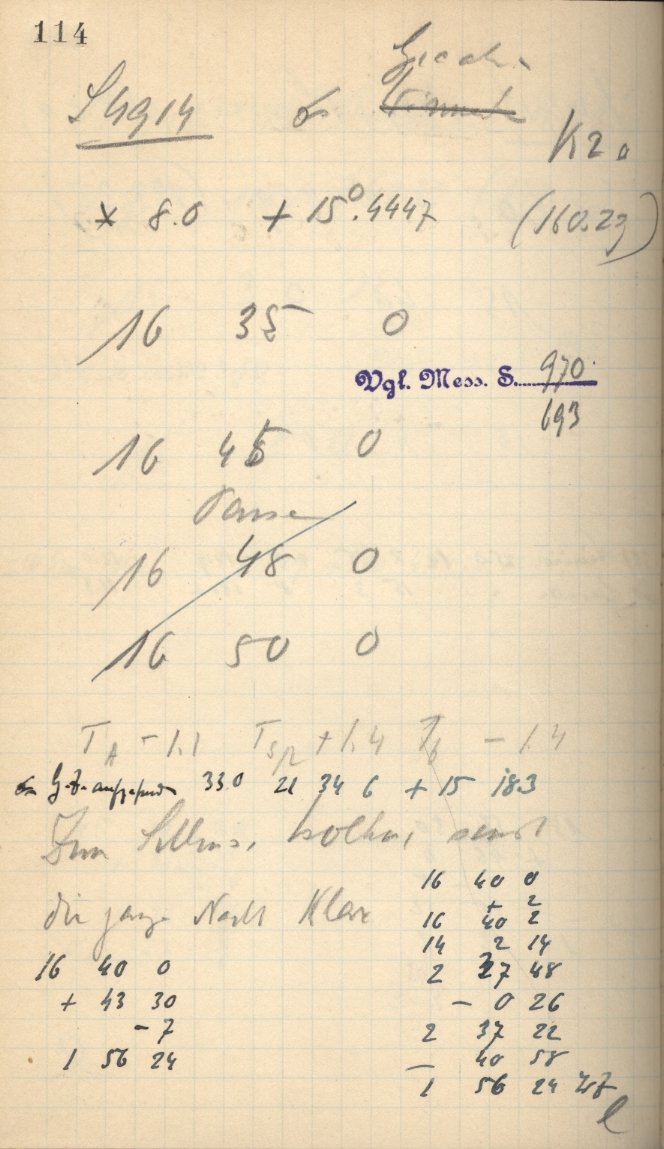 114
S4914
K2a
* 8.0 + 15°.4447 (160.23)
16 35 0
Vgl. Mess. S. 970
693
16 45 0
Pause
16 48 0
16 50 0
T A - 1.1 T Sp + 1.4 - 1.4
33.0 21 34 6 + 15 18.3
Zum Schluss, wolkig, sonst
die ganze Nacht Klar
16 40 0
+ 2
16 40 2
14 2 14
2 37 48
- 0 26
2 37 22
- 40 58
1 56 24
16 40 0
+ 43 30
- 7
1 56 24